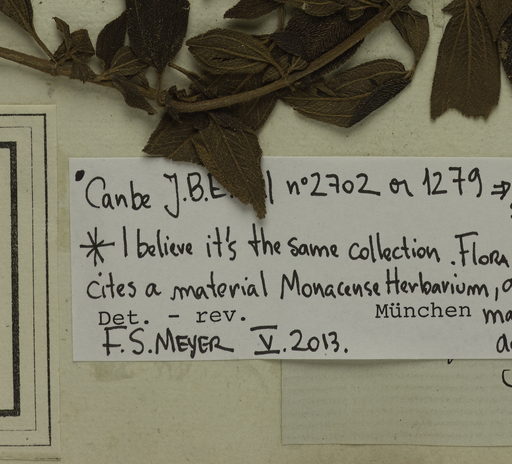 • Canbe J.B.E. n°2702 or 1279 ⇒
* I believe it's the same collection. Flora
cites a material Monacense Herbarium,
Det. - rev. München ma
F.S. MEYER V.2013.